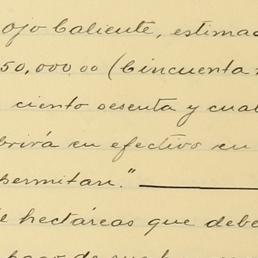 ojo Caliente, estimad
50,000.00 (Cincuenta
ciento sesenta y cua
brirá en efectivo en
permitan."
hectáreas que debe